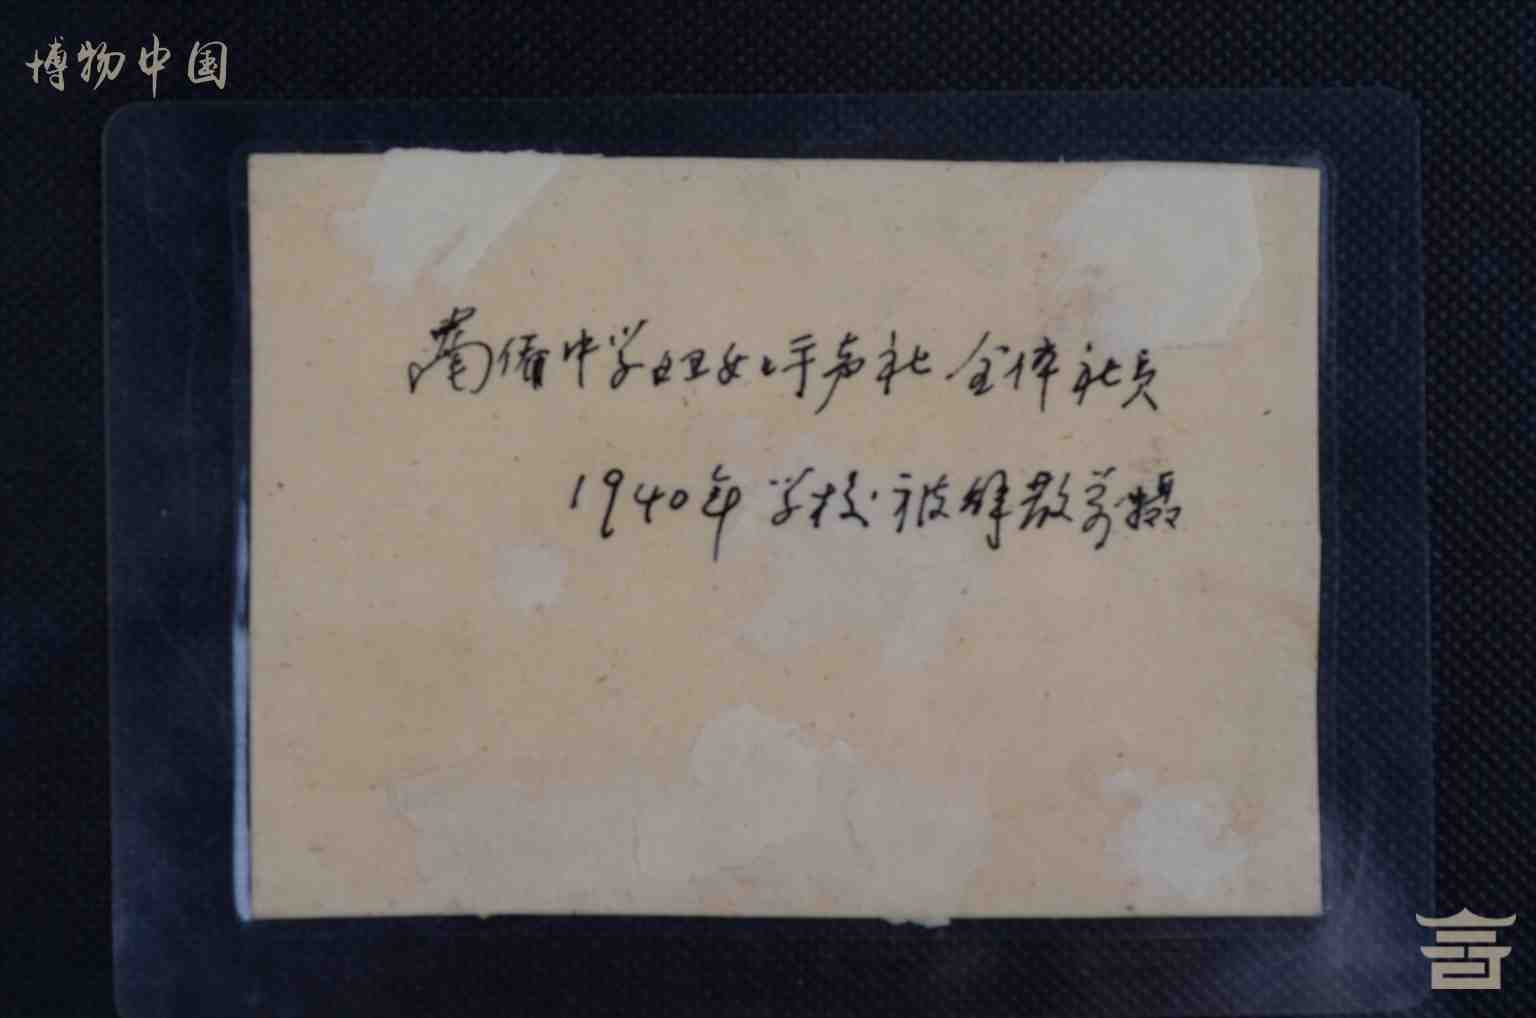 博物中国
南侨中学妇女呼声社全体社员
1940年学校被解散前摄